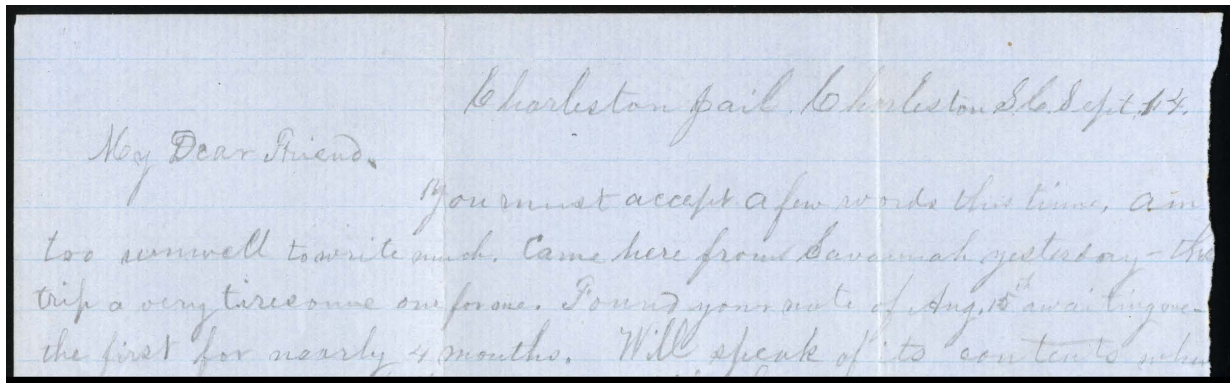 Charleston Jail. Charleston S.C. Sept. 14.
My Dear Friend.
You must accept a few words this time, am
too unwell to write much. Came here from Savannah yesterday - the
trip a very tiresome one for me. Found your note of Aug. 15th awaiting me -
the first for nearly 4 months. Will speak of its contents when